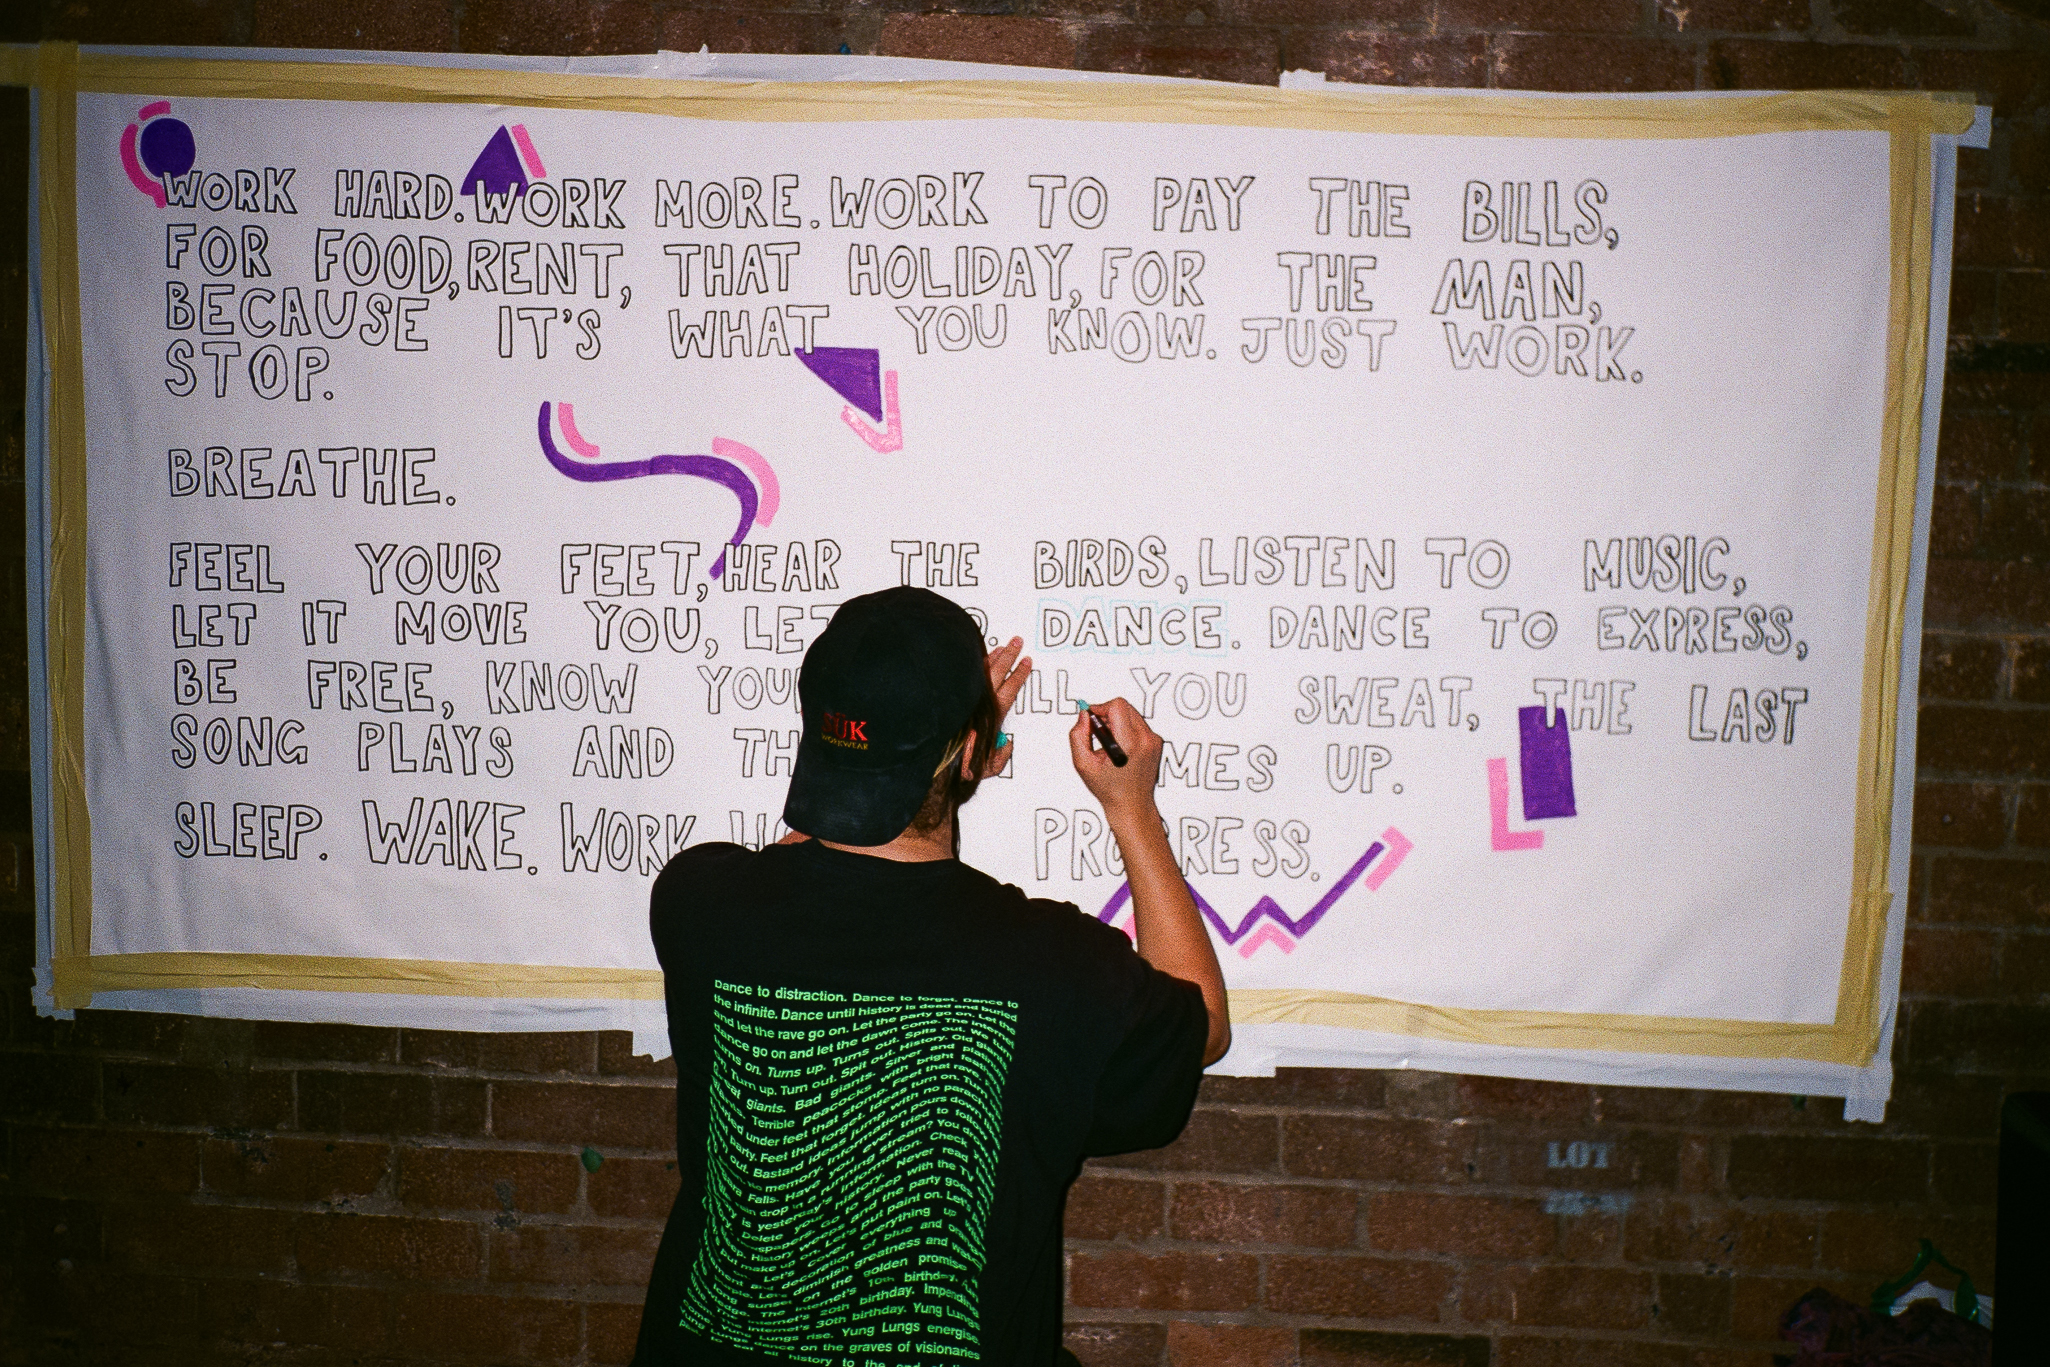 WORK HARD. WORK MORE. WORK TO PAY THE BILLS,
FOR FOOD, RENT, THAT HOLIDAY, FOR THE MAN,
BECAUSE IT'S WHAT YOU KNOW. JUST WORK.
STOP.
BREATHE.
FEEL YOUR FEET, HEAR THE BIRDS, LISTEN TO MUSIC,
LET IT MOVE YOU, LET DANCE. DANCE TO EXPRESS,
BE FREE, KNOW YOU SWEAT, THE LAST
SONG PLAYS AND UP.
SLEEP. WAKE. WORK PROGRESS.
SÜK
WORKWEAR
Dance to distraction. Dance to forget. Dance to
the infinite. Dance until history is dead and buried
and let the rave go on. Let the party go on. Let the
dance go on and let the dawn come. The internet
turns on. Turns up. Turns out. Spits out. We turn
Turn up. Turn out. Spit out. History. Old giants.
giants. Bad giants. Silver and
Terrible peacocks with bright
under feet that stomp. Feel that rave.
party. Feel that forget. Ideas turn on. Turn
out. Bastard ideas jump with no
memory. Information pours down
Falls. Have you ever tried to
drop in running stream? You
is yesterday's information. Check
Delete your history. Never read
Go to sleep with the
History weeps and the party goes
make up on. Let's put paint on. Let's
Let's cover everything up
decoration of blue and
Let's diminish greatness and
sunset on the golden promise
The internet's 10th birthday.
The internet's 20th birthday.
internet's 30th birthday. Yung Lungs
Yung Lungs rise. Yung Lungs energise.
dance on the graves of visionaries
all history to the end of
LOT